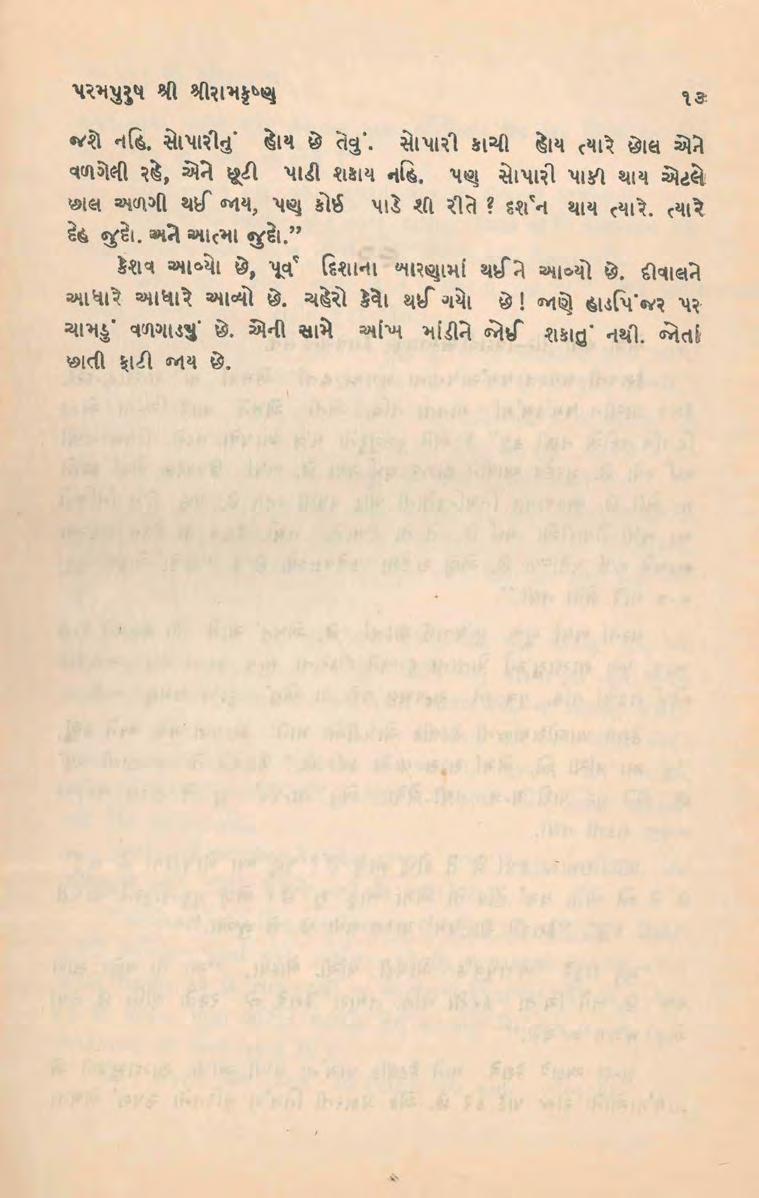 પરમપુરુષ શ્રી શ્રીરામકૃષ્ણ ૧૩
જશે નહિ. સોપારીનું હોય છે તેવું. સોપારી કાચી હોય ત્યારે છોલ એને
વળગેલી રહે, એને છૂટી પાડી શકાય નહિ. પણ સોપારી પાકી થાય એટલે
છાલ અળગી થઈ જાય, પણ કોઈ પાડે શી રીતે ? દર્શન થાય ત્યારે. ત્યારે
દેહ જુદો. અને આત્મા જુદો.”
કેશવ આવ્યો છે, પૂર્વ દિશાના બારણામાં થઈને આવ્યો છે. દીવાલને
આધારે આધારે આવ્યો છે. ચહેરો કેવો થઈ ગયો છે ! જાણે હાડપિંજર પર
ચામડું વળગાડ્યું છે. એની સામે આંખ માંડીને જોઈ શકાતું નથી. જોતાં
છાતી ફાટી જાય છે.